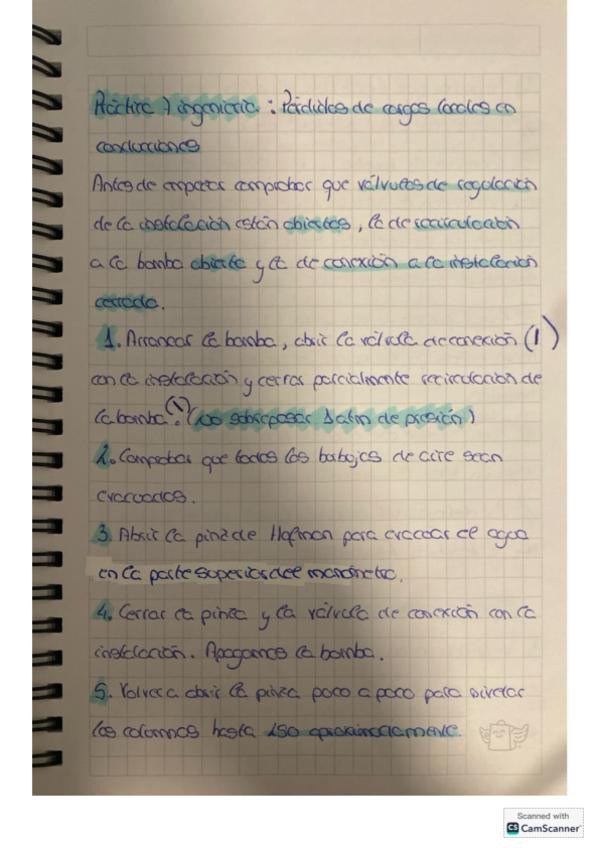 Práctica 7 ingeniería : Pérdidas de cargas locales en
conducciones
Antes de empezar comprobar que válvulas de regulación
de la instalación están abiertas, la de recirculación
a la bomba abierta y la de conexión a la instalación
cerrada.
1. Arrancar la bomba, abrir la válvula de conexión (1)
con la instalación y cerrar parcialmente recirculación de
la bomba. (no sobrepasar 1 atm de presión)
2. Comprobar que todas las burbujas de aire sean
evacuados.
3. Abrir la pinza de Hofman para evacuar el agua
en la parte superior del manómetro.
4. Cerrar la pinza y la válvula de conexión con la
instalación. Apagamos la bomba.
5. Volver a abrir la pinza poco a poco para nivelar
las columnas hasta 150 aproximadamente.
Scanned with
CS CamScanner